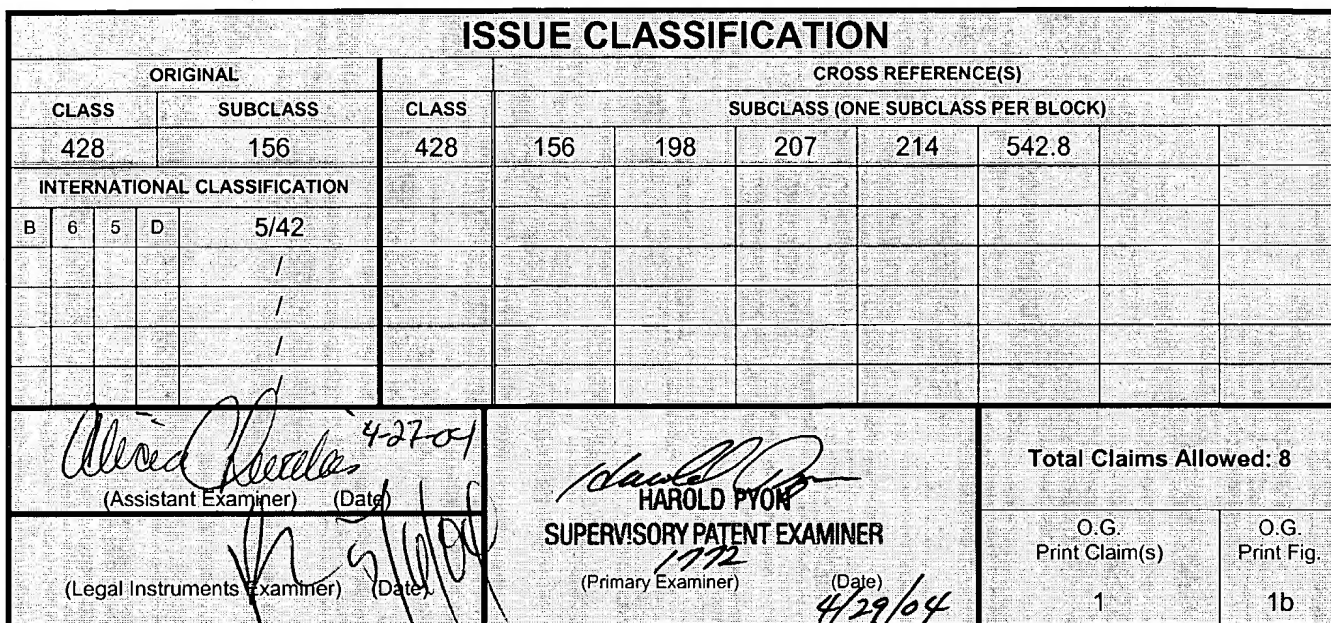 ISSUE CLASSIFICATION
ORIGINAL CROSS REFERENCE(S)
CLASS SUBCLASS CLASS SUBCLASS (ONE SUBCLASS PER BLOCK)
428 156 428 156 198 207 214 542.8
INTERNATIONAL CLASSIFICATION
B 6 5 D 5/42
/
/
/
/
4-27-04
(Assistant Examiner) (Date)
(Legal Instruments Examiner) (Date)
Harold Pyon
HAROLD PYON
SUPERVISORY PATENT EXAMINER
1772
(Primary Examiner) (Date)
4/29/04
Total Claims Allowed: 8
O.G.
Print Claim(s)
1
O.G.
Print Fig.
1b